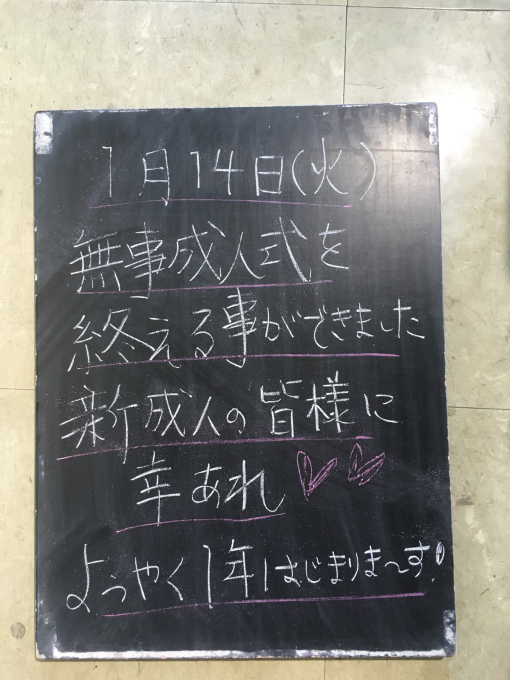 1月14日(火)
無事成人式を
終える事ができました
新成人の皆様に
幸あれ
ようやく1年はじまりま〜す!